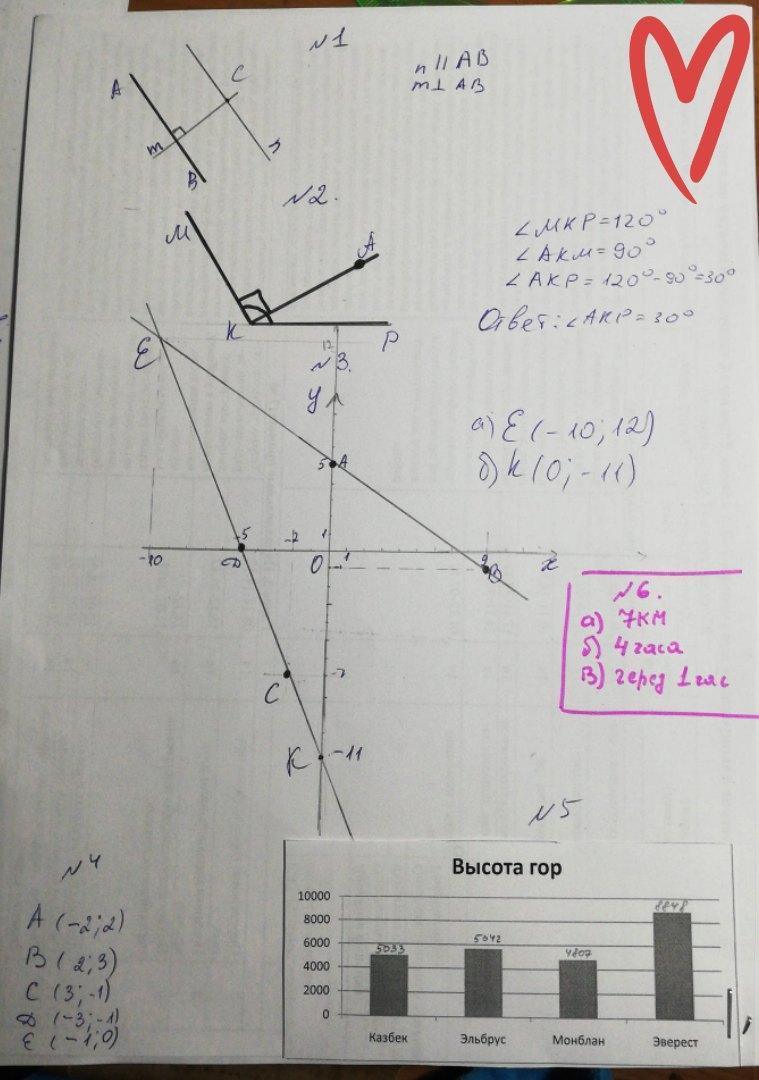 №1
n || AB
m ⊥ AB
A
C
m
n
B
№2.
M
A
K
P
∠MKP=120°
∠AKM=90°
∠AKP=120°-90°=30°
Ответ: ∠AKP=30°
№3.
12
E
y
5 A
а) E(-10; 12)
б) K(0; -11)
-10
-5
D
-2
1
O
-1
1
9
B
x
C
-7
K
-11
№6.
а) 7км
б) 4 часа
В) через 1 час
№4
A (-2; 2)
B (2; 3)
C (3; -1)
D (-3; -1)
E (-1; 0)
№5
Высота гор
10000
8000
6000
4000
2000
0
5033
5642
4807
8848
Казбек
Эльбрус
Монблан
Эверест